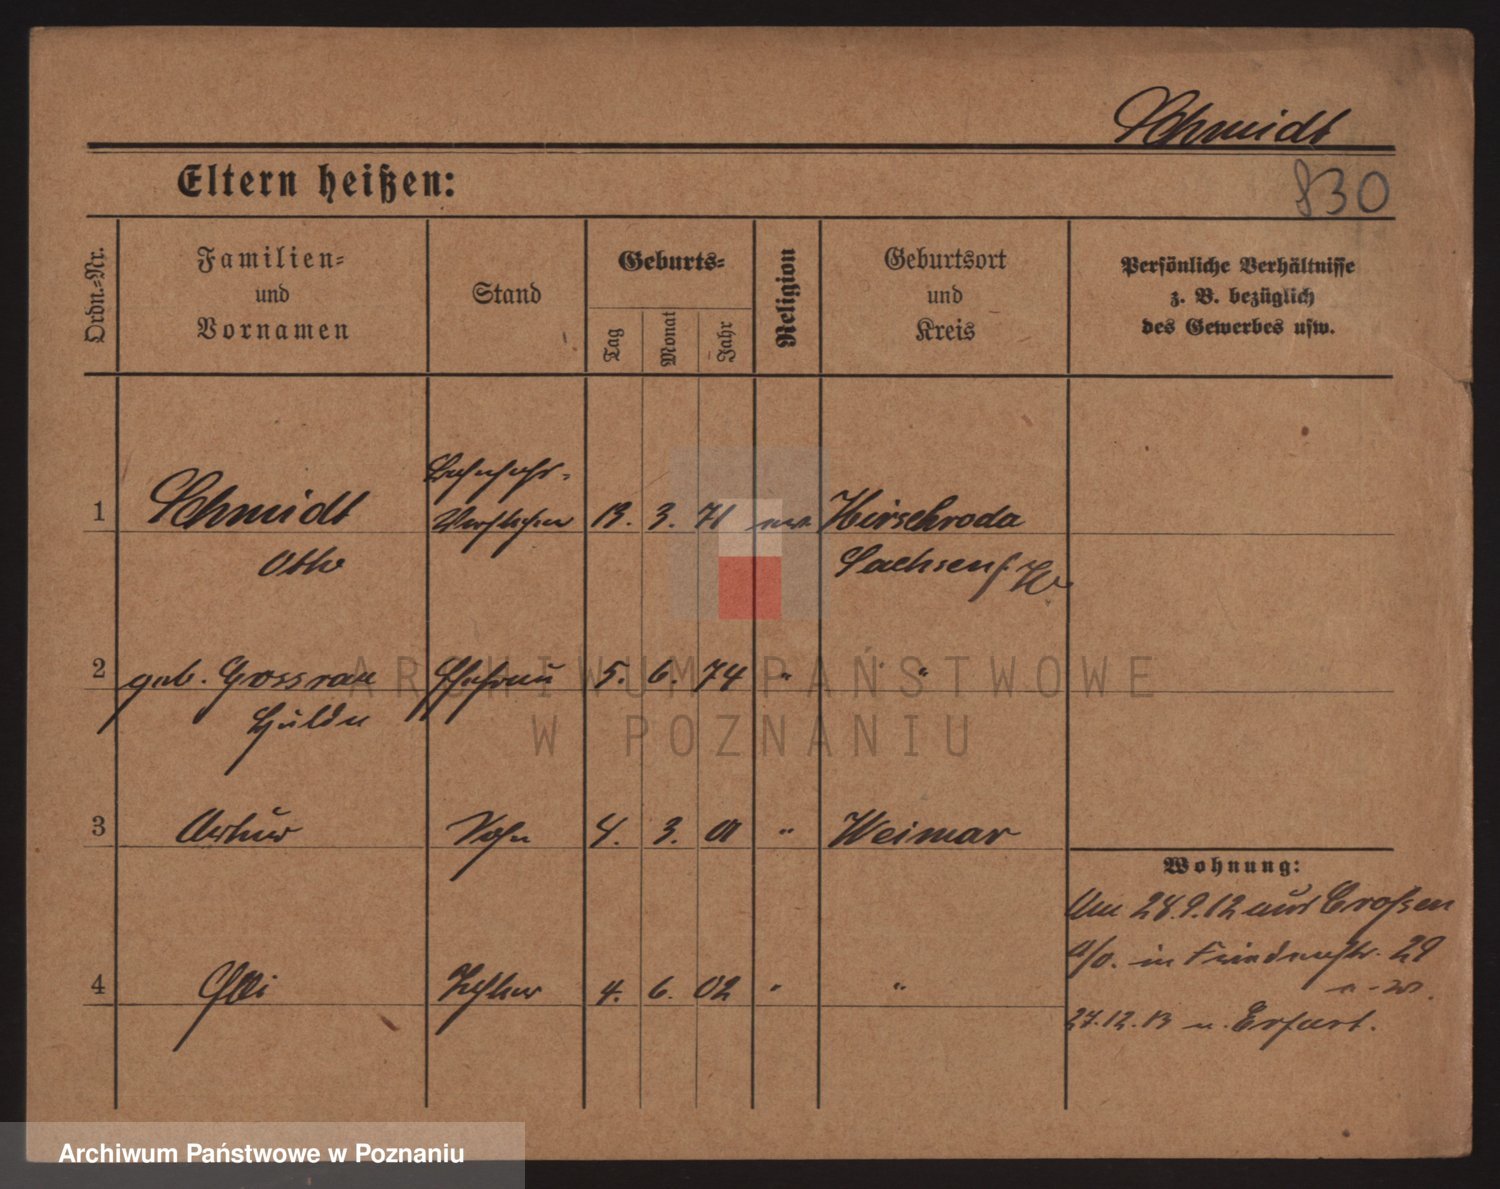 Schmidt
Eltern heißen:
830
Ordn.-Nr.
Familien-
und
Vornamen
Stand
Geburts-
Tag
Monat
Jahr
Religion
Geburtsort
und
Kreis
Persönliche Verhältnisse
z. B. bezüglich
des Gewerbes usw.
1 Schmidt 13. 3. 71 Hirschroda
Otto Sachsen/W
2 geb. Gossrau Ehefrau 5. 6. 74 " "
Hulda
3 Arthur Sohn 4. 3. 01 " Weimar
Wohnung:
Am 28.9.12 aus Crossen
a/O. in 29
4 Elli Tochter 4. 6. 02 " "
27.12.13 n. Erfurt.
ARCHIWUM PAŃSTWOWE
W POZNANIU
Archiwum Państwowe w Poznaniu